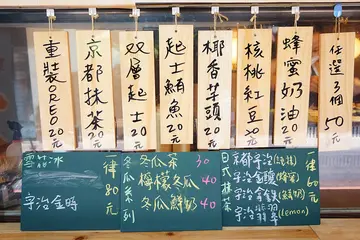 重裝OREO 20元
京都抹茶 20元
双層起士 20元
起士鮪魚 20元
椰香芋頭 20元
核桃紅豆 20元
蜂蜜奶油 20元
任選3個 50元
雪酷冰
宇治金時
一律80元
冬瓜系列
冬瓜茶 30
檸檬冬瓜 40
冬瓜鮮奶 40
日式抹茶
京都宇治
宇治金
宇治金
宇治翡翠(lemon)
一律60元